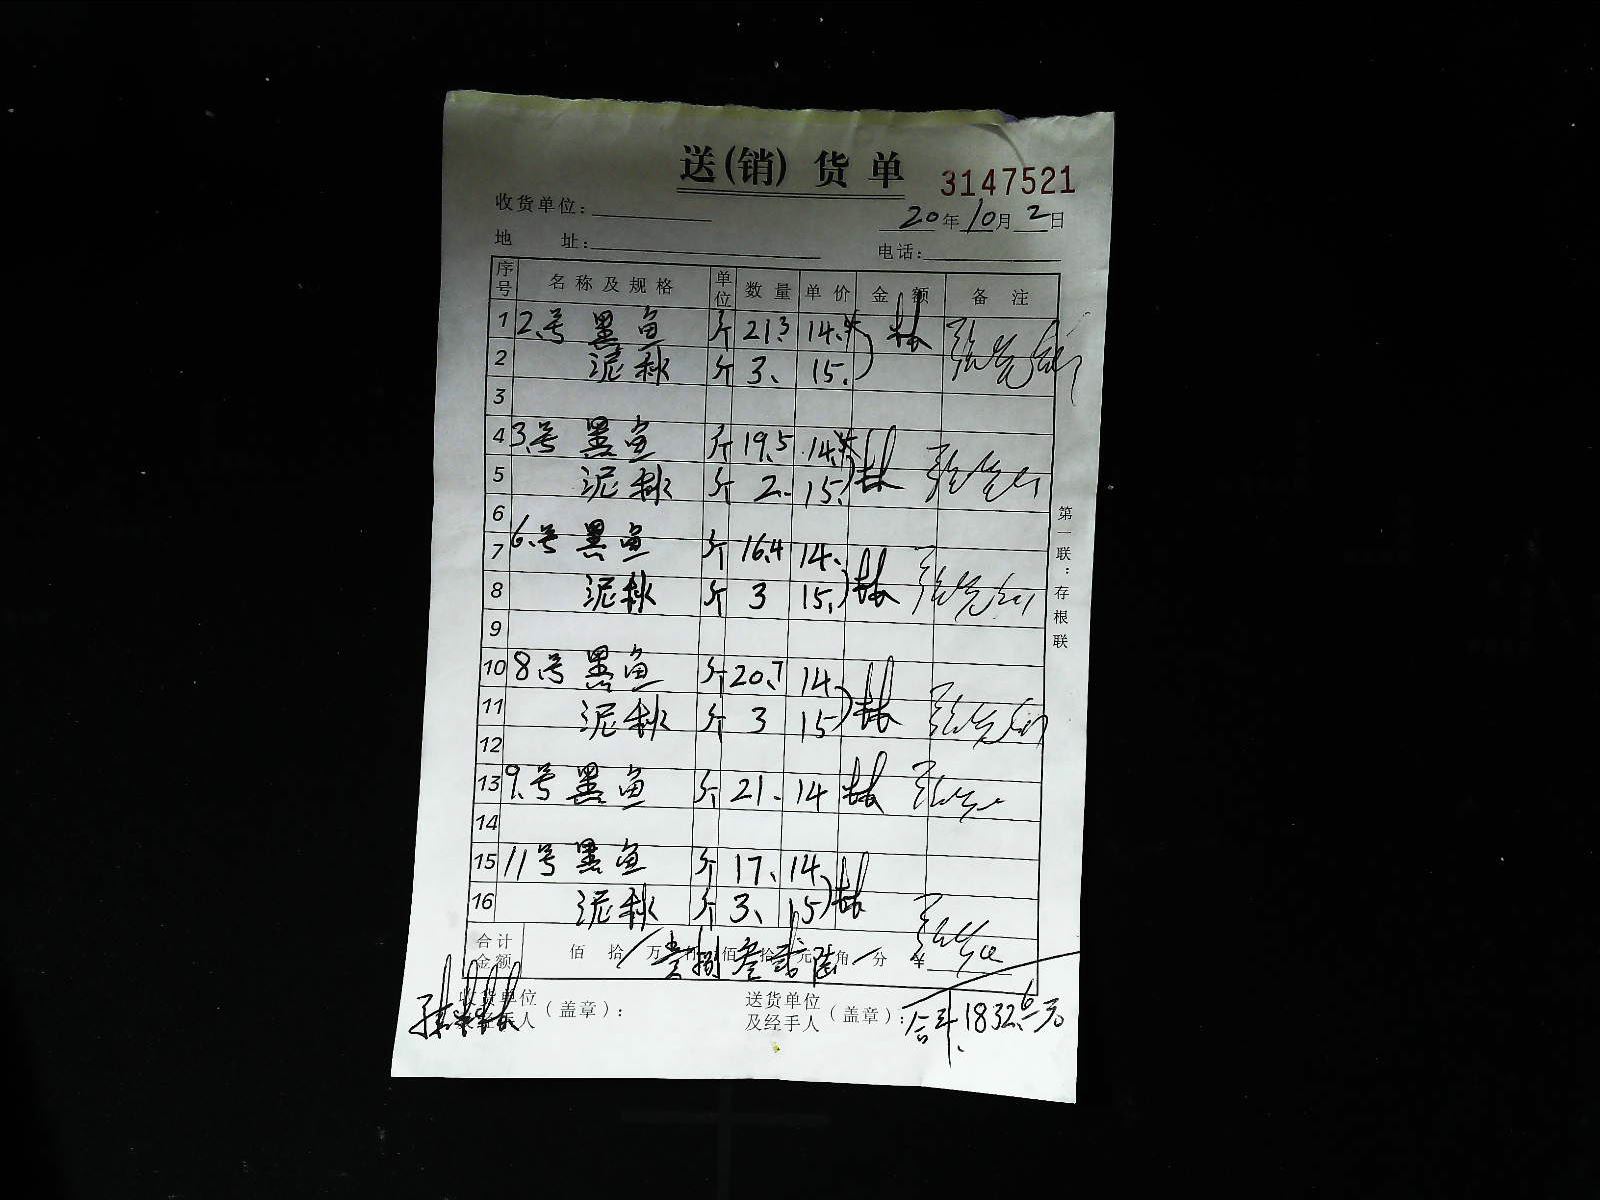 送(销)货单 3147521
收货单位: 20年10月2日
地 址: 电话:
序号 名称及规格 单位 数量 单价 金额 备注
1 2号 黑鱼 斤 21.3 14.
2 泥秋 斤 3. 15.
3
4 3号 黑鱼 斤 19.5 14.
5 泥秋 斤 2. 15.
6
7 6号 黑鱼 斤 16.4 14.
8 泥秋 斤 3 15.
9
10 8号 黑鱼 斤 20.7 14.
11 泥秋 斤 3 15
12
13 9号 黑鱼 斤 21. 14
14
15 11号 黑鱼 斤 17. 14.
16 泥秋 斤 3. 15
合计金额 佰 拾 万 壹仟 捌佰 叁拾 贰元 陆角 分 ¥
收货单位及经手人(盖章): 送货单位及经手人(盖章): 合计.1832.6元
第一联:存根联